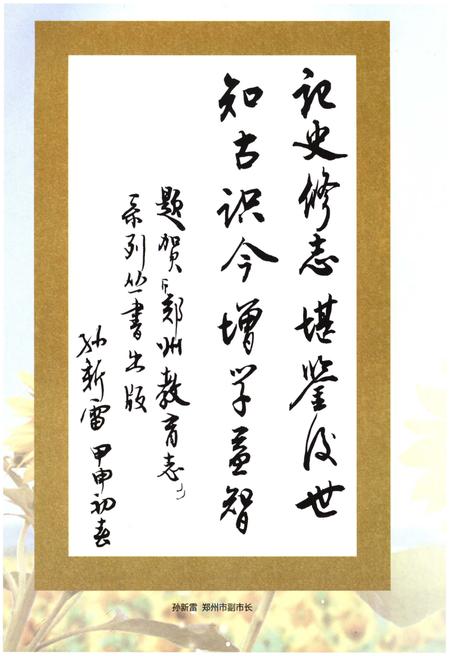 记史修志堪鉴后世
知古识今增学益智
题贺“郑州教育志”
系列丛书出版
孙新雷 甲申初春
孙新雷 郑州市副市长